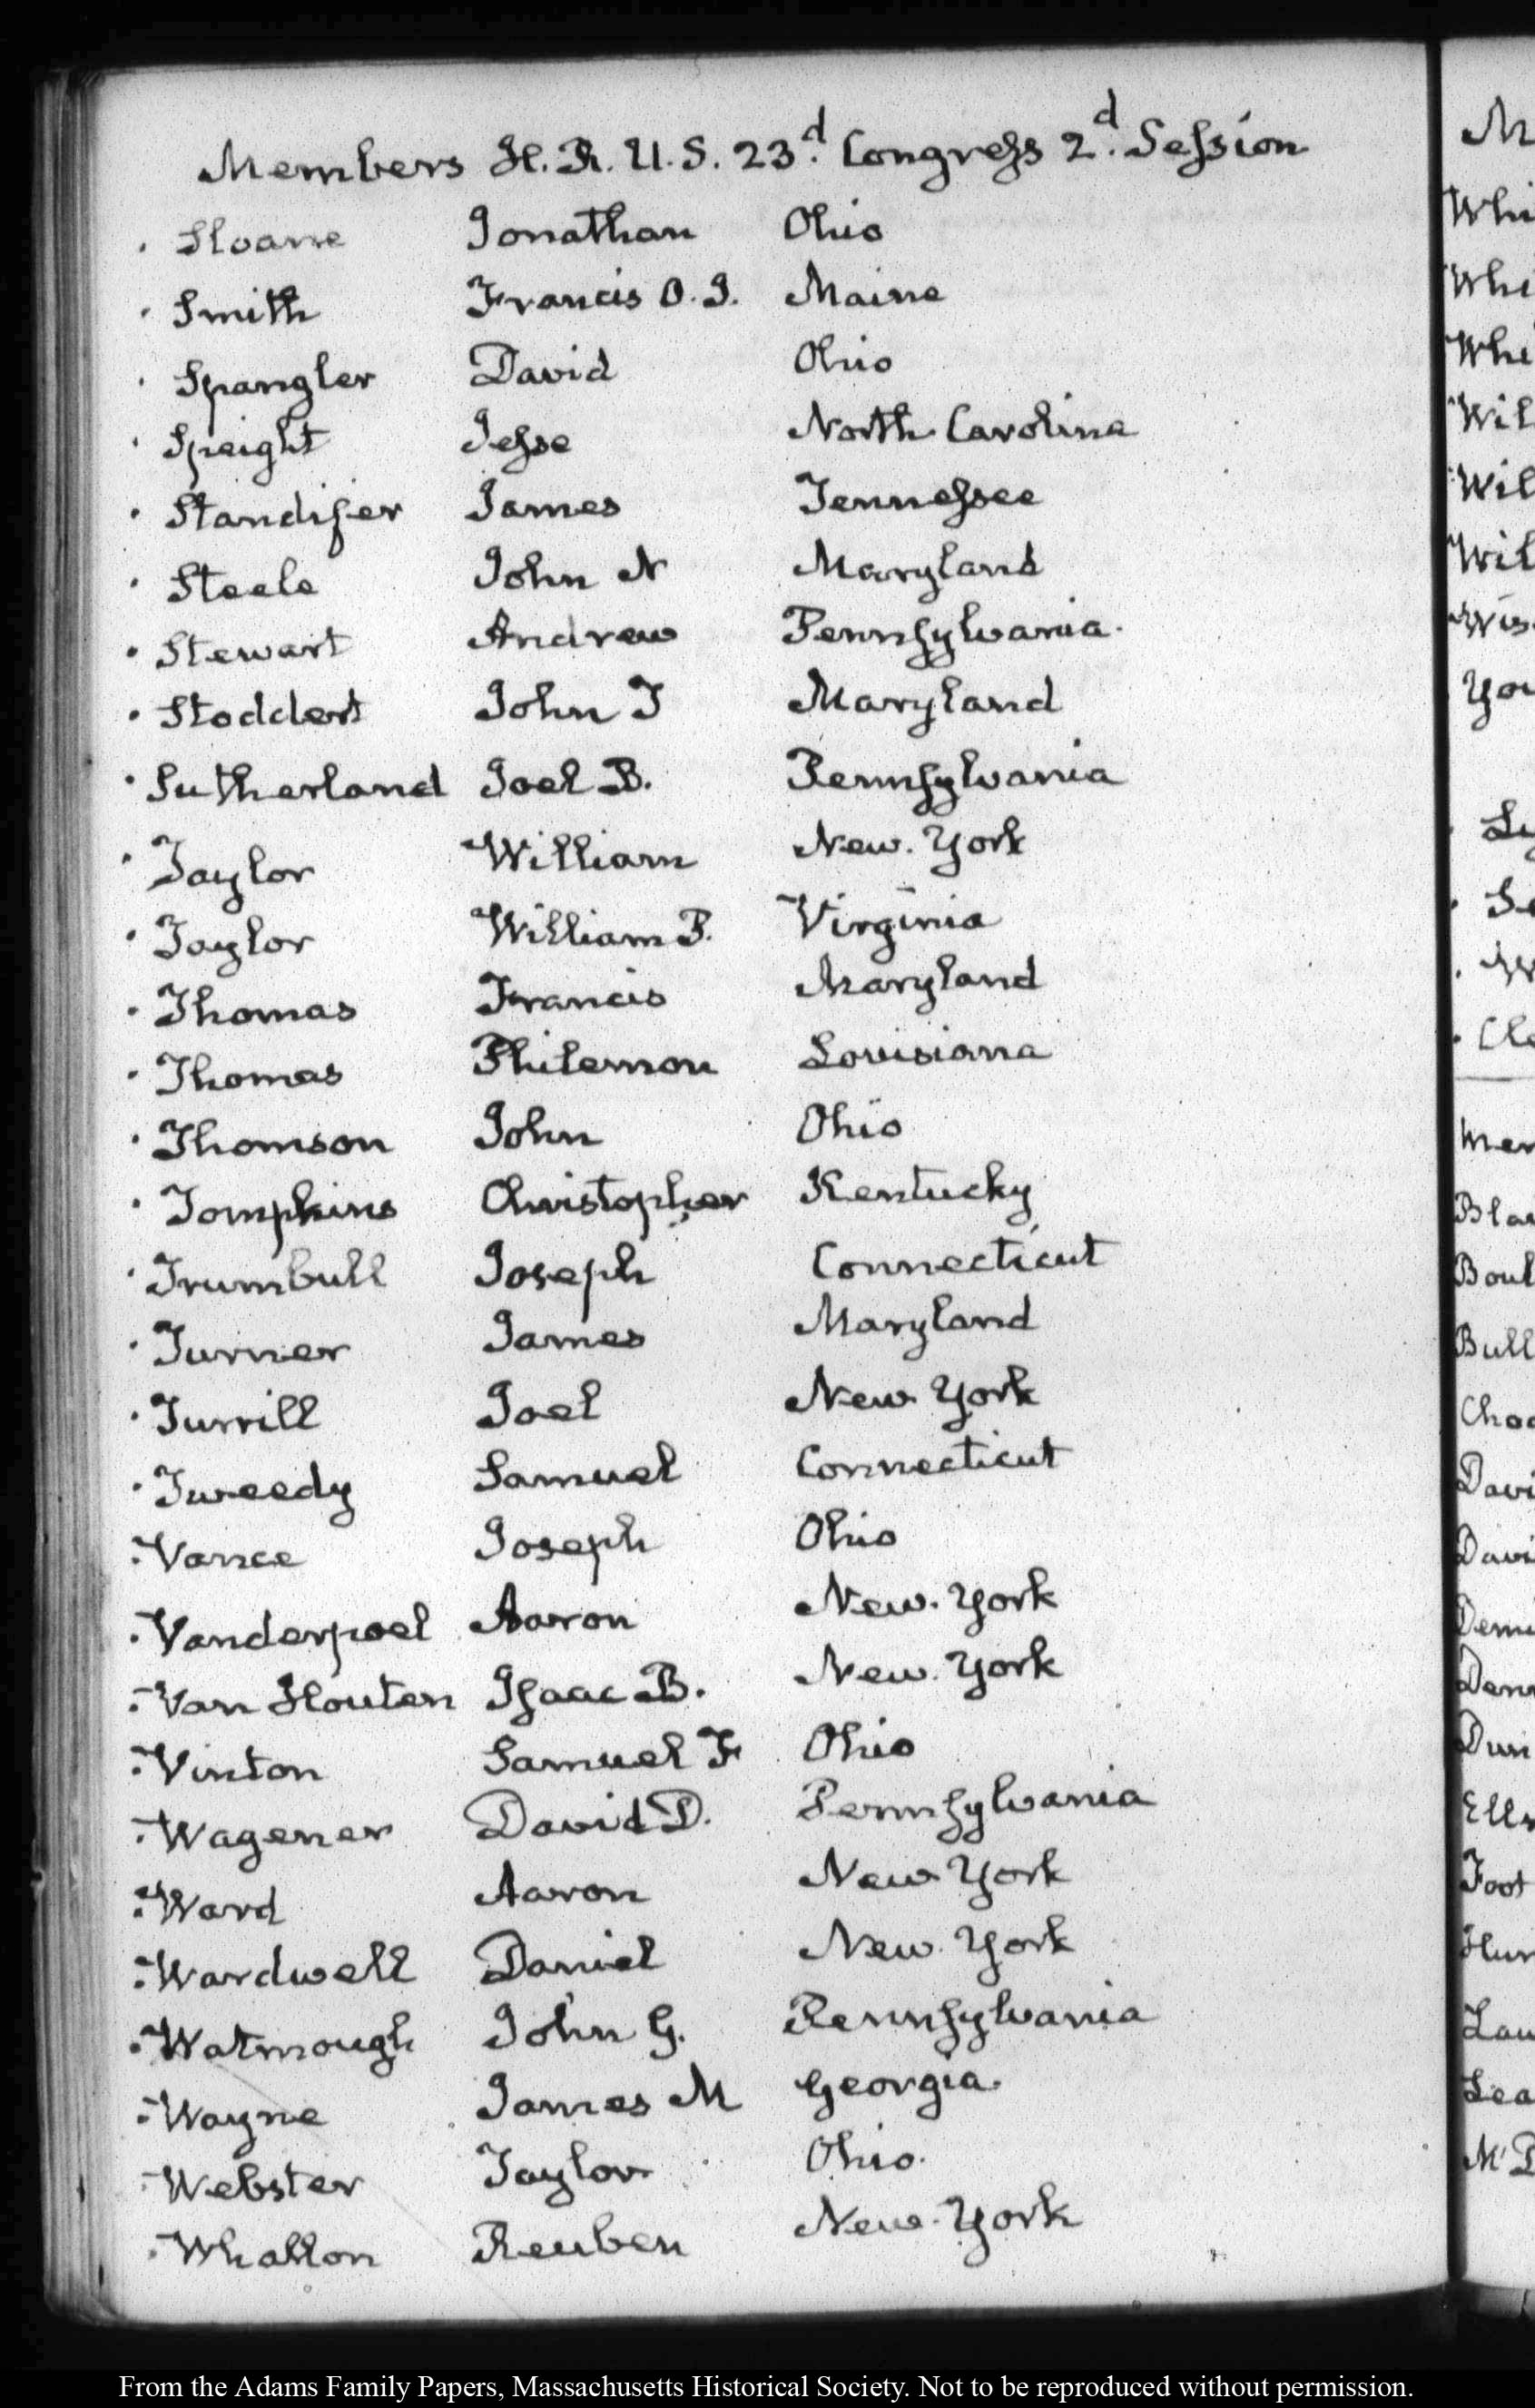 Members H. R. U. S. 23.d Congress 2.d Session
Sloane Jonathan Ohio
Smith Francis O. J. Maine
Spangler David Ohio
Speight Jesse North Carolina
Standifer James Tennessee
Steele John N Maryland
Stewart Andrew Pennsylvania.
Stoddert John T Maryland
Sutherland Joel B. Pennsylvania
Taylor William New. York
Taylor William P. Virginia
Thomas Francis Maryland
Thomas Philemon Louisiana
Thomson John Ohio
Tompkins Christopher Kentucky
Trumbull Joseph Connecticut
Turner James Maryland
Turrill Joel New York
Tweedy Samuel Connecticut
Vance Joseph Ohio
Vanderpoel Aaron New. York
Van Houten Isaac B. New. York
Vinton Samuel F Ohio
Wagener David D. Pennsylvania
Ward Aaron New York
Wardwell Daniel New. York
Watmough John G. Pennsylvania
Wayne James M Georgia
Webster Taylor Ohio.
Whallon Reuben New. York
M
Whi
Whi
Whi
Wil
Wil
Wil
Wis
You
Ly
Se
W
Cle
Mem
Bla
Boul
Bull
Choc
Davi
Davi
Demi
Denn
Dun
Ells
Foot
Hun
Law
Lea
McD
From the Adams Family Papers, Massachusetts Historical Society. Not to be reproduced without permission.